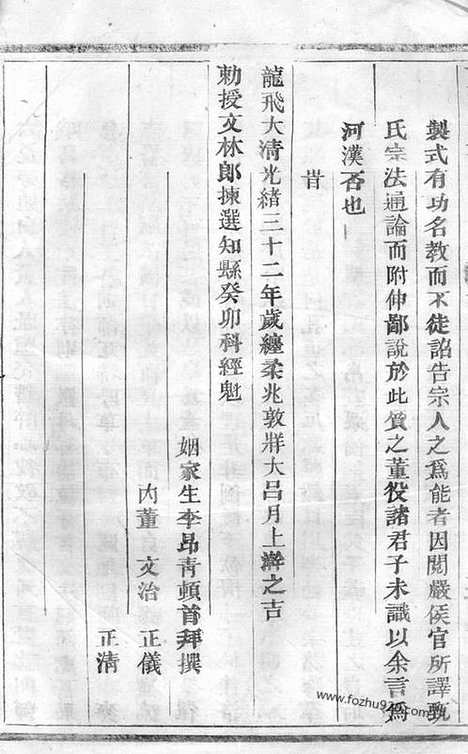 製式有功名教而不徒詔告宗人之爲能者因閱嚴侯官所譯甄
氏宗法通論而附伸鄙說於此質之董役諸君子未識以余言爲
河漢否也
昔
龍飛大清光緒三十二年歲纏柔兆敦牂大吕月上澣之吉
勅授文林郎揀選知縣癸卯科經魁
姻家生李昂靑頓首拜撰
内董 文治 正儀
正清
www.fozhu920.com